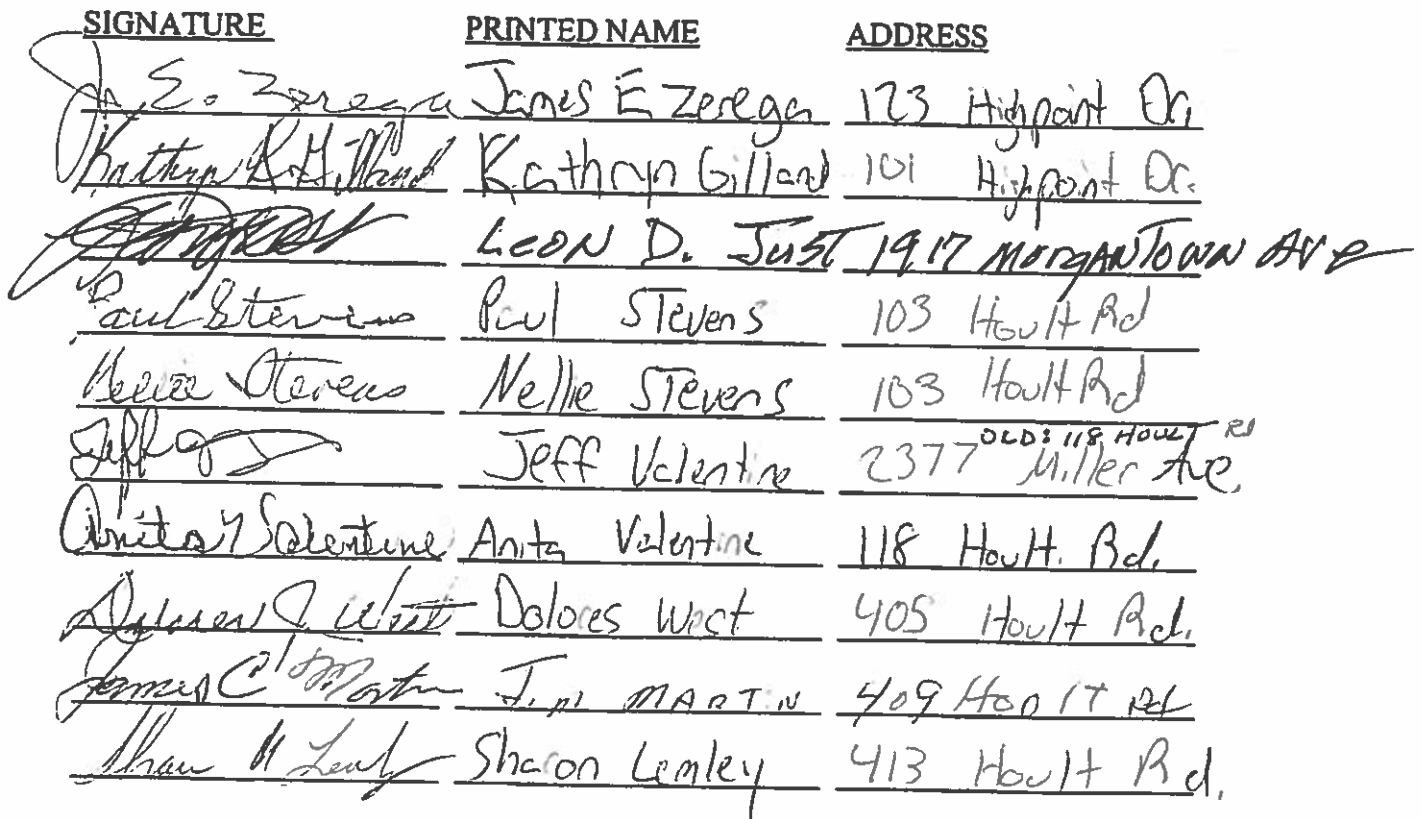 SIGNATURE PRINTED NAME ADDRESS
Js E. Zerega James E Zerega 123 Highpoint Dr.
Kathryn R Gilland Kathryn Gilland 101 Highpoint Dr.
Leon D. Just 1917 Morgantown Ave
Paul Stevens Paul Stevens 103 Hoult Rd
Nellie Stevens Nellie Stevens 103 Hoult Rd
OLD: 118 HOULT Rd
Jeff Jeff Valentine 2377 Miller Ave.
Anita Y Valentine Anita Valentine 118 Hoult. Rd.
Dolores J. West Dolores West 405 Hoult Rd.
James C Martin Jim MARTIN 409 Hoult Rd
Sharon Lemley 413 Hoult Rd.